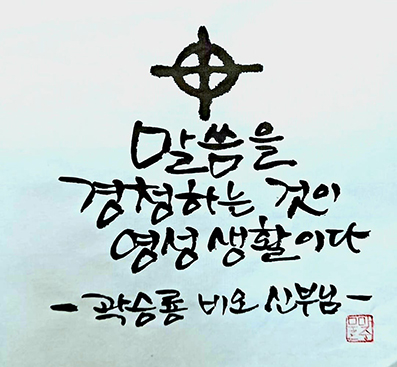 말씀을
경청하는 것이
영성 생활이다
- 곽승룡 비오 신부님 -